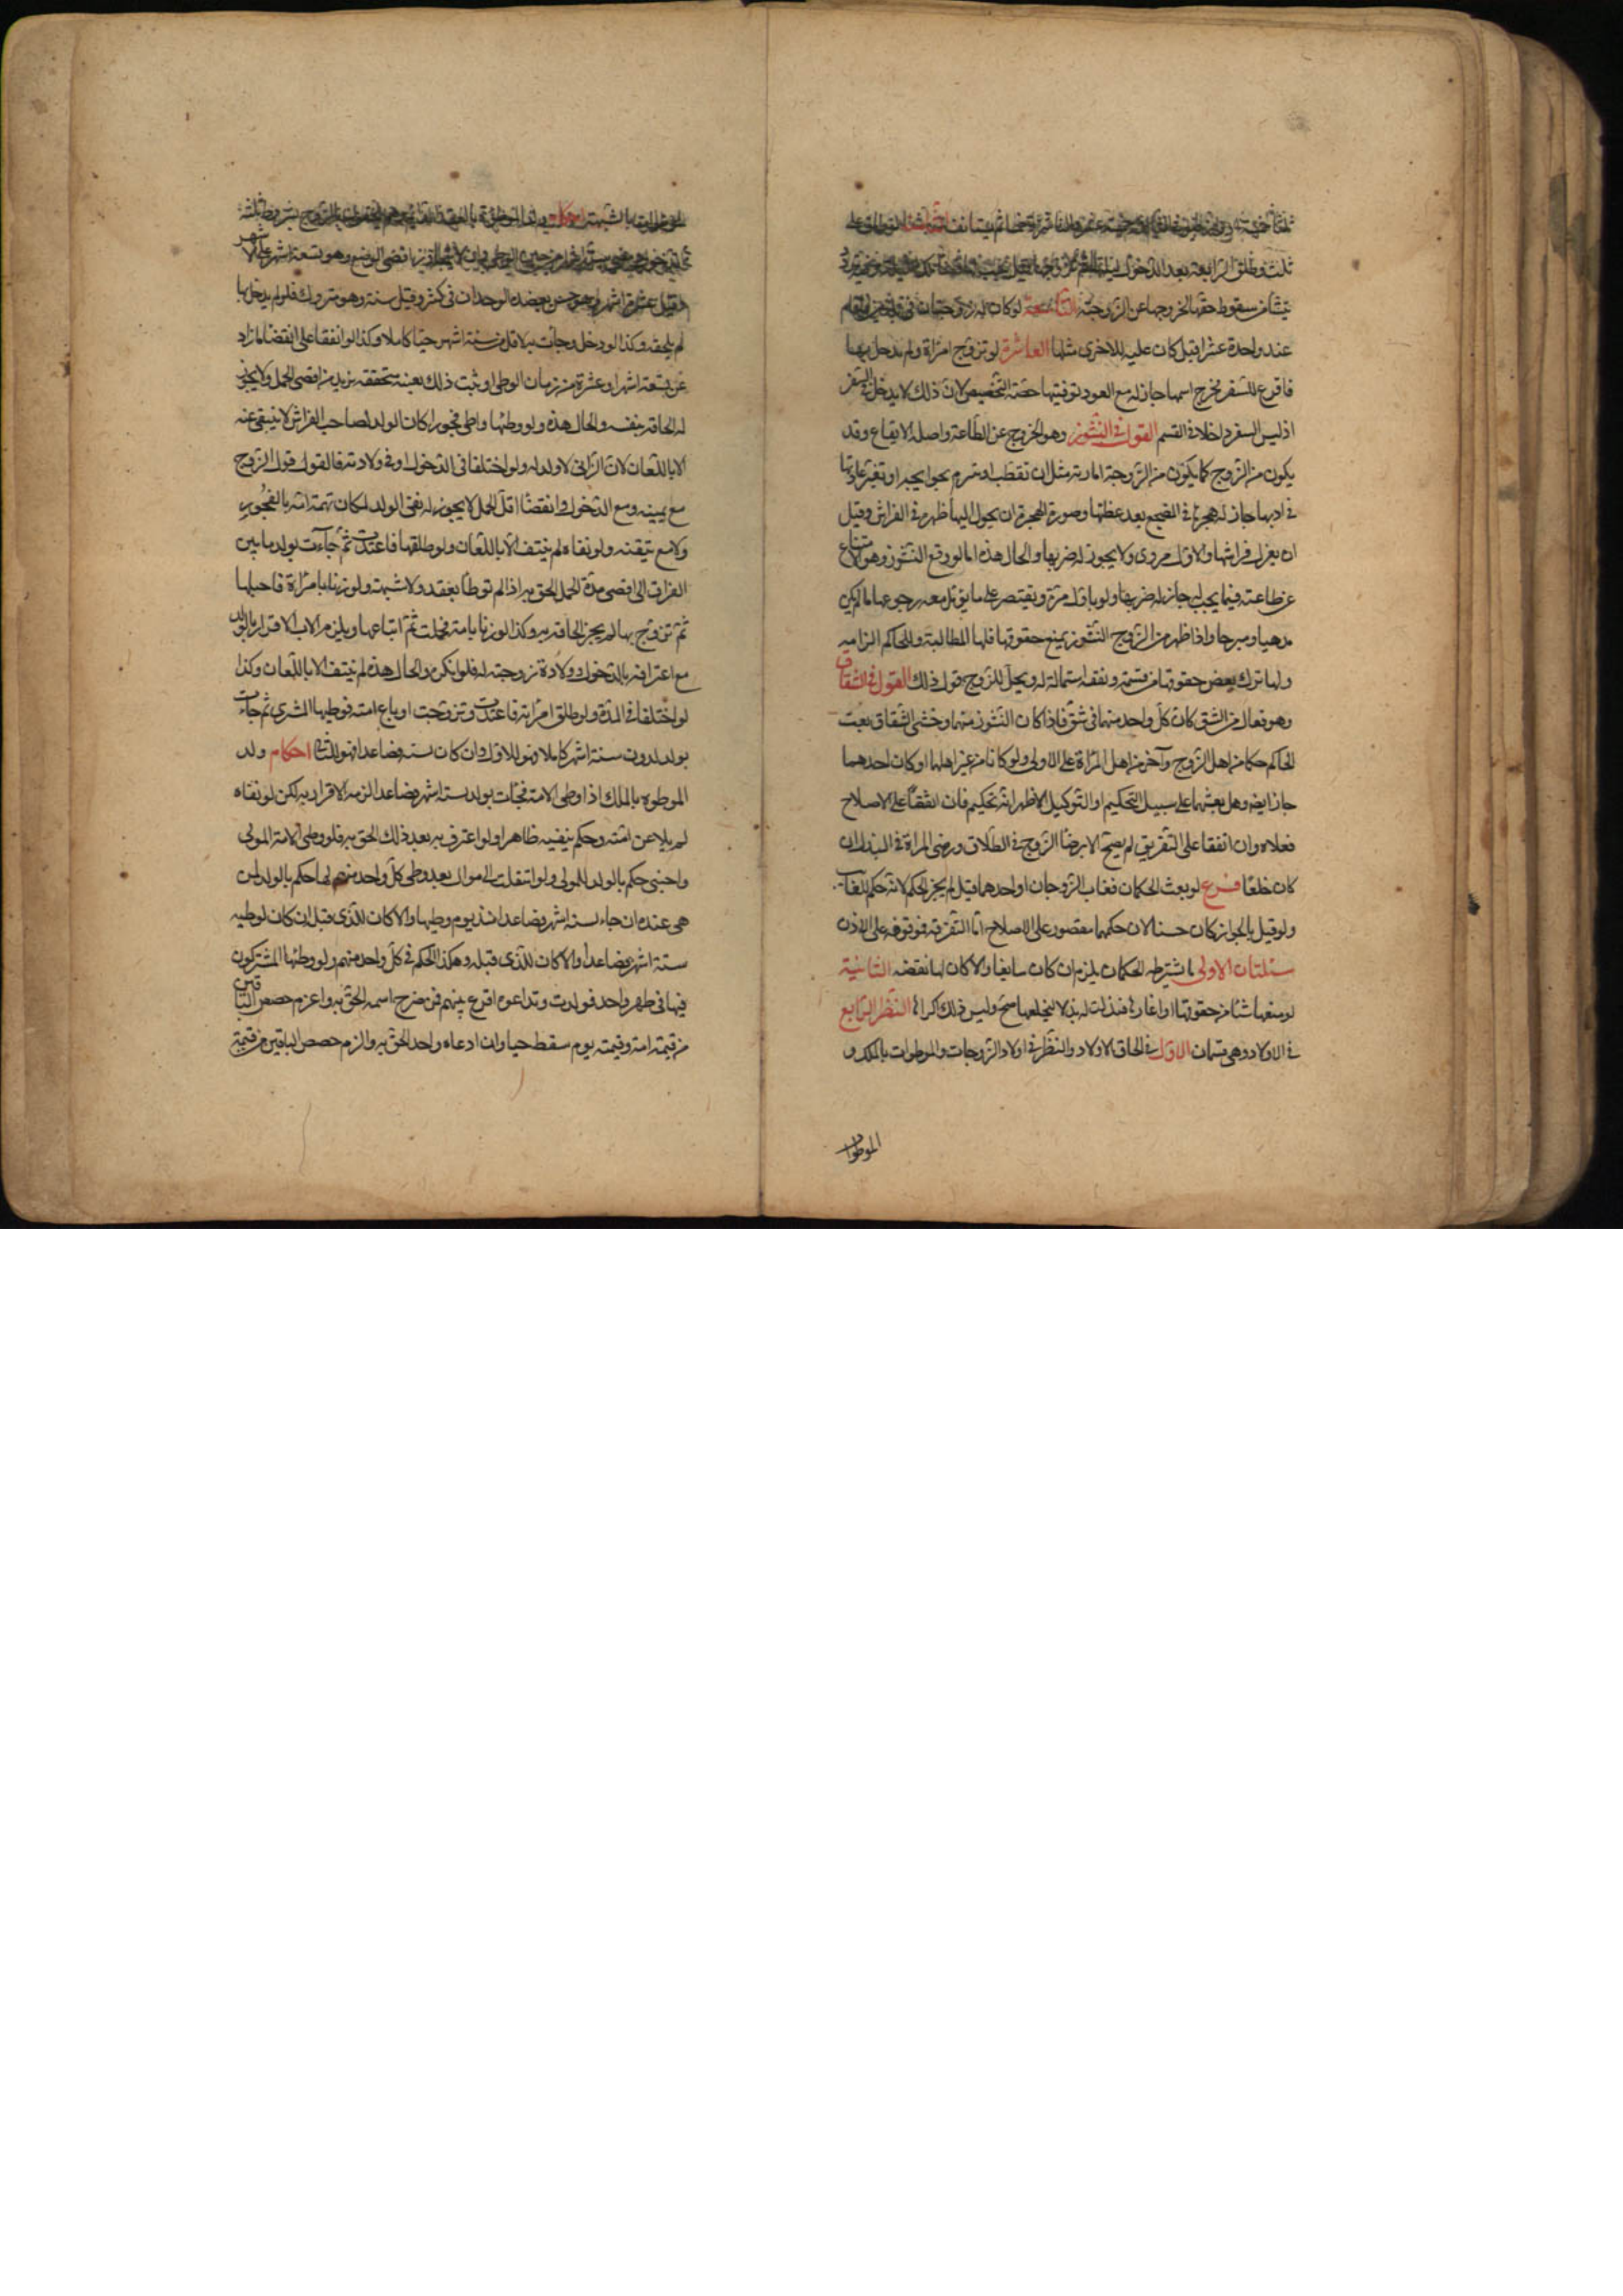 ثلث وطلق الرابعة بعد الدخول
بتشأ من سقوط حقها لخروجها عن الزوجية التاسعة لو كان له زوجتان في
عند واحدة عشرا قيل كان عليه للاخرى مثلها العاشرة لو تزوج امراة ولم يدخل بها
فاقرع للسفر فخرج اسمها جاز له مع العود توفيتها حصة التخصيص لان ذلك لا يدخل في السفر
اذ ليس السفر داخلا في القسم القول في النشوز وهو الخروج عن الطاعة واصله الارتفاع وقد
يكون من الزوج كما يكون من الزوجة امارته مثل ان تقطب او تتبرم بحوايجه او تغير عادتها
في ادبها جاز له هجرها في المضجع بعد عظتها وصورة الهجرة ان يحول اليها ظهره في الفراش وقيل
ان يعزل فراشها والاول مروى ولا يجوز له ضربها والحال هذه اما لو وقع النشوز وهو الامتناع
عن طاعته فيما يجب له جاز له ضربها ولو باول مرة ويقتصر على ما يؤمل معه رجوعها ما لم يكن
مدميا ومبرحا واذا ظهر من الزوج النشوز بمنع حقوقها فلها المطالبة وللحاكم الزامه
ولها ترك بعض حقوقها من قسمة ونفقه استمالة له ويحل للزوج قبول ذلك القول في الشقاق
وهو فعال من الشق كان كل واحد منهما في شق فاذا كان النشوز منهما وخشى الشقاق بعث
الحاكم حكما من اهل الزوج وآخر من اهل المراة على الاولى ولو كانا من غير اهلهما او كان احدهما
جاز ايضا وهل بعثهما على سبيل التحكيم او التوكيل الاظهر انه تحكيم فان اتفقا على الاصلاح
فعلاه وان اتفقا على التفريق لم يصح الا برضا الزوج في الطلاق ورضى المراة في البذل ان
كان خلعا فرع لو بعث الحكمان فغاب الزوجان او احدهما قيل لم يجز الحكم لانه حكم للغائب
ولو قيل بالجواز كان حسنا لان حكمهما مقصور على الاصلاح اما التفرقة فموقوفه على الاذن
مسئلتان الاولى ما شترطه الحكمان يلزم ان كان سايغا والا كان لهما نقضه الثانية
لو منعها شيئا من حقوقها او اغارها فبذلت له بذلا ليخلعها صح وليس ذلك اكراها النظر الرابع
في الاولاد وهي قسمان الاول في الحاق الاولاد والنظر في اولاد الزوجات والموطوات بالملك و
الموطوات
بالشبهة احكام ولد الموطوءة بالعقد
اقصى الوضع وهو تسعة اشهر على الاشهر
وقيل عشرة اشهر وهو حسن يعضده الوجدان في كثير وقيل سنة وهو متروك فلو لم يدخل بها
لم يلحقه وكذا لو دخل وجآت به لاقل من ستة اشهر حيا كاملا وكذا لو اتفقا على انقضا ما زاد
عن تسعة اشهر او عشرة من زمان الوطى او ثبت ذلك بغيبة متحققه تزيد من اقصى الحمل ولا يجوز
له الحاقه بنفسه والحال هذه ولو وطئها واطى فجورا كان الولد لصاحب الفراش لا ينتفى عنه
الا باللعان لان الزانى لا ولد له ولو اختلفا في الدخول او في ولادته فالقول قول الزوج
مع يمينه ومع الدخول وانقضا اقل الحمل لا يجوز له نفى الولد لمكان تهمة امه بالفجور
ولا مع تيقنه ولو نفاه لم ينتف الا باللعان ولو طلقها فاعتدت ثم جاءت بولد ما بين
الفراق الى اقصى مدة الحمل لحق به اذا لم توطأ بعقد ولا شبهة ولو زنا بامراة فاحبلها
ثم تزوج بها لم يجز الحاقه به وكذا لو زنا بامة فحملت ثم ابتاعها ويلزم الاب الاقرار بالولد
مع اعترافه بالدخول وولادة زوجته له فلو انكر والحال هذه لم ينتف الا باللعان وكذا
لو اختلفا في المدة ولو طلق امراته فاعتدت وتزوجت او باع امته فوطيها المشترى ثم جاءت
بولد لدون ستة اشهر كاملا فهو للاول وان كان لسته فصاعدا فهو للثانى احكام ولد
الموطوه بالملك اذا وطى الامة فجآت بولد لستة اشهر فصاعدا لزمه الاقرار به لكن لو نفاه
لم يلاعن امته وحكم بنفيه ظاهرا ولو اعترف به بعد ذلك الحق به فلو وطى الامة المولى
واجنبى حكم بالولد للمولى ولو انتقلت الى موال بعد وطى كل واحد منهم لها حكم بالولد لمن
هى عنده ان جاء لستة اشهر فصاعدا منذ يوم وطيها والا كان للذى قبله ان كان لوطيه
ستة اشهر فصاعدا والا كان للذى قبله وهكذا الحكم في كل واحد منهم ولو وطئها المشتركون
فيها في طهر واحد فولدت وتداعوه اقرع بينهم فمن خرج اسمه الحق به واغرم حصص الباقين
من قيمة امه وقيمته يوم سقط حيا وان ادعاه واحد الحق به والزم حصص الباقين من قيمته